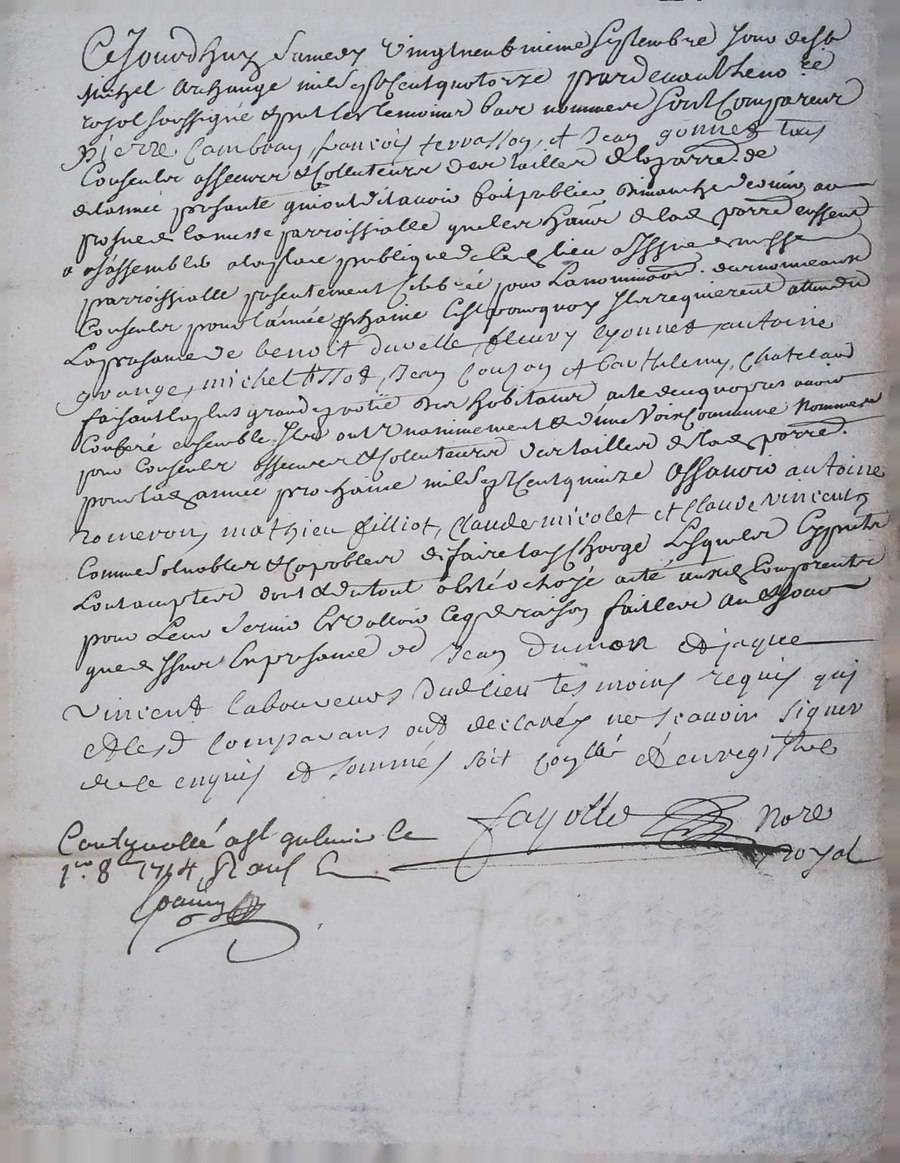 Cejourdhuy Samedy vingtneufvieme Septembre Jour de St
Michel Archange mil sept Cent quatorze pardevant le no.re
royal soussigné et put les temoins bas nommes sont Comparus
pierre Cambray, francois terrasson, et Jean gonnet tous
Consuls asseeurs et Collecteurs des tailles de la parre. de
de l'année presante qui ont dit avoir fait publier dimanche dernier au
prosne de la messe parroissialle que les habns de lad. parre eussent
a s'assembler a la place publique de ce lieu a Issue de messe
parroissialle presentement Celebrée pour la nomination des nouveaux
Consuls pour l'année prochaine C'est pourquoy Ils requierent attendu
La presance de benoit duvelle, fleury lyonnet, antoine
grange, michel tissot, Jean Couzon et barthelemy Chatelard
faisant la plus grande partie des habitans acte de ce qu'apres avoir
Conferé ensemble Ils ont unanimement et d'une voix Commune Nommés
pour Consuls asseeurs et Collecteurs des tailles de lad. parre.
pour lad. année prochaine mil sept Cent quinze assavoir antoine
romeron, mathieu filliot, Claude micolet et Claude vincent
Comme solvables et capables de faire lad. Charge Lesquels
dont et du tout a esté octroyé acte ausd. Comparants
pour Leur servir et valloir ce que de raison fait lesd. an et jour
que dessus En presance de Jean dumon et jaque
vincent laboureurs dud. lieu tesmoins requis qui
et lesd. Comparans ont declarés ne scavoir signer
de ce enquis et sommés soit et enregistré
fayolle Nore
royal
Contrerollé a st le
1er 8 1714